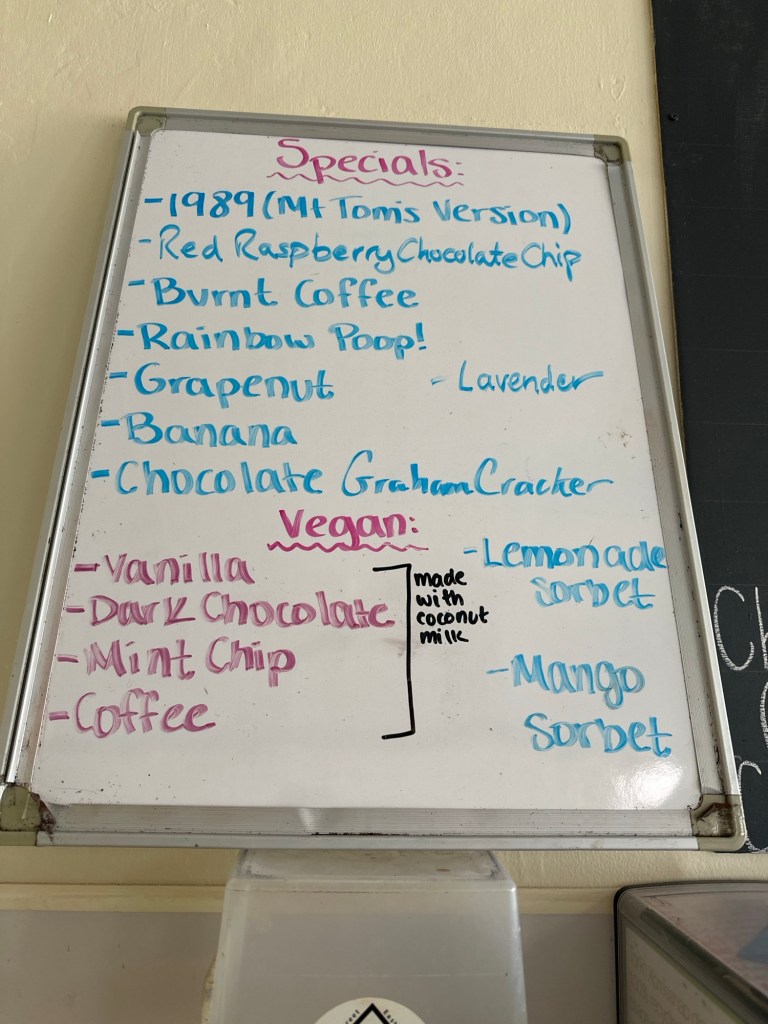 Specials:
-1989 (Mt Tom's Version)
-Red Raspberry Chocolate Chip
-Burnt Coffee
-Rainbow Poop!
-Grapenut
-Lavender
-Banana
-Chocolate Graham Cracker
Vegan:
-Vanilla
-Dark Chocolate
-Mint Chip
-Coffee
made
with
coconut
milk
-Lemonade
Sorbet
-Mango
Sorbet